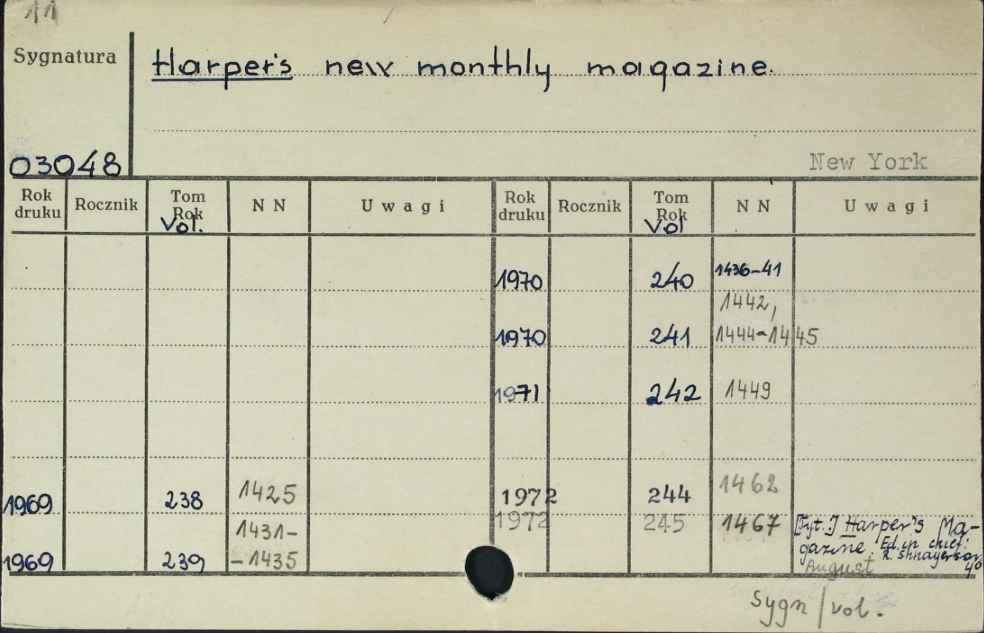 11
Sygnatura
Harper's new monthly magazine.
03048
New York
Rok druku Rocznik Tom Rok Vol. NN Uwagi Rok druku Rocznik Tom Rok Vol NN Uwagi
1970 240 1436-41
1442,
1970 241 1444-1445
1971 242 1449
1969 238 1425 1972 244 1462
1972 245 1467 [Tyt.] Harper's Ma-
1431-
gazine. Ed. in chief:
1969 239 -1435 R. Shnayerson
August 4°
Sygn/vol.